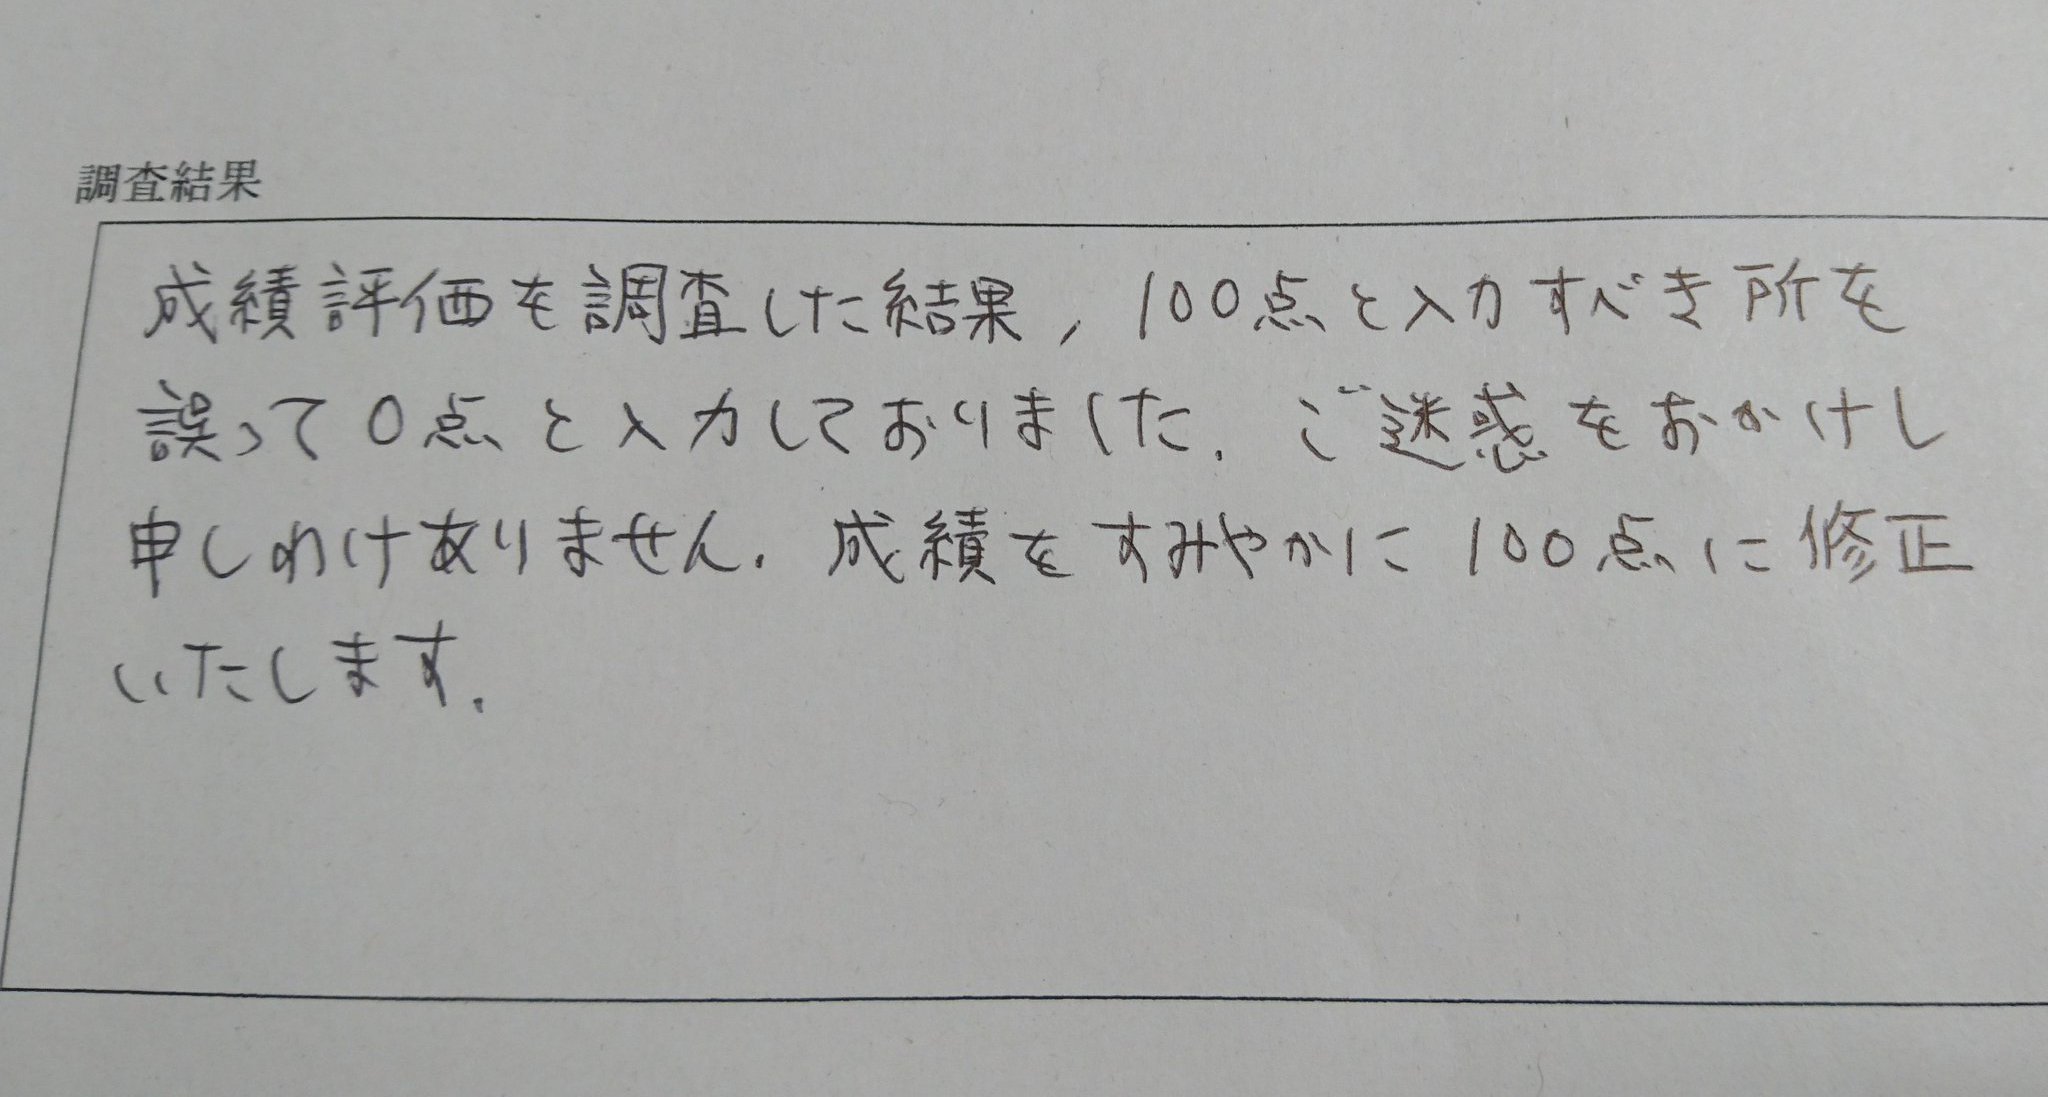 調査結果
成績評価を調査した結果，100点と入力すべき所を
誤って0点と入力しておりました．ご迷惑をおかけし
申しわけありません．成績をすみやかに100点に修正
いたします．